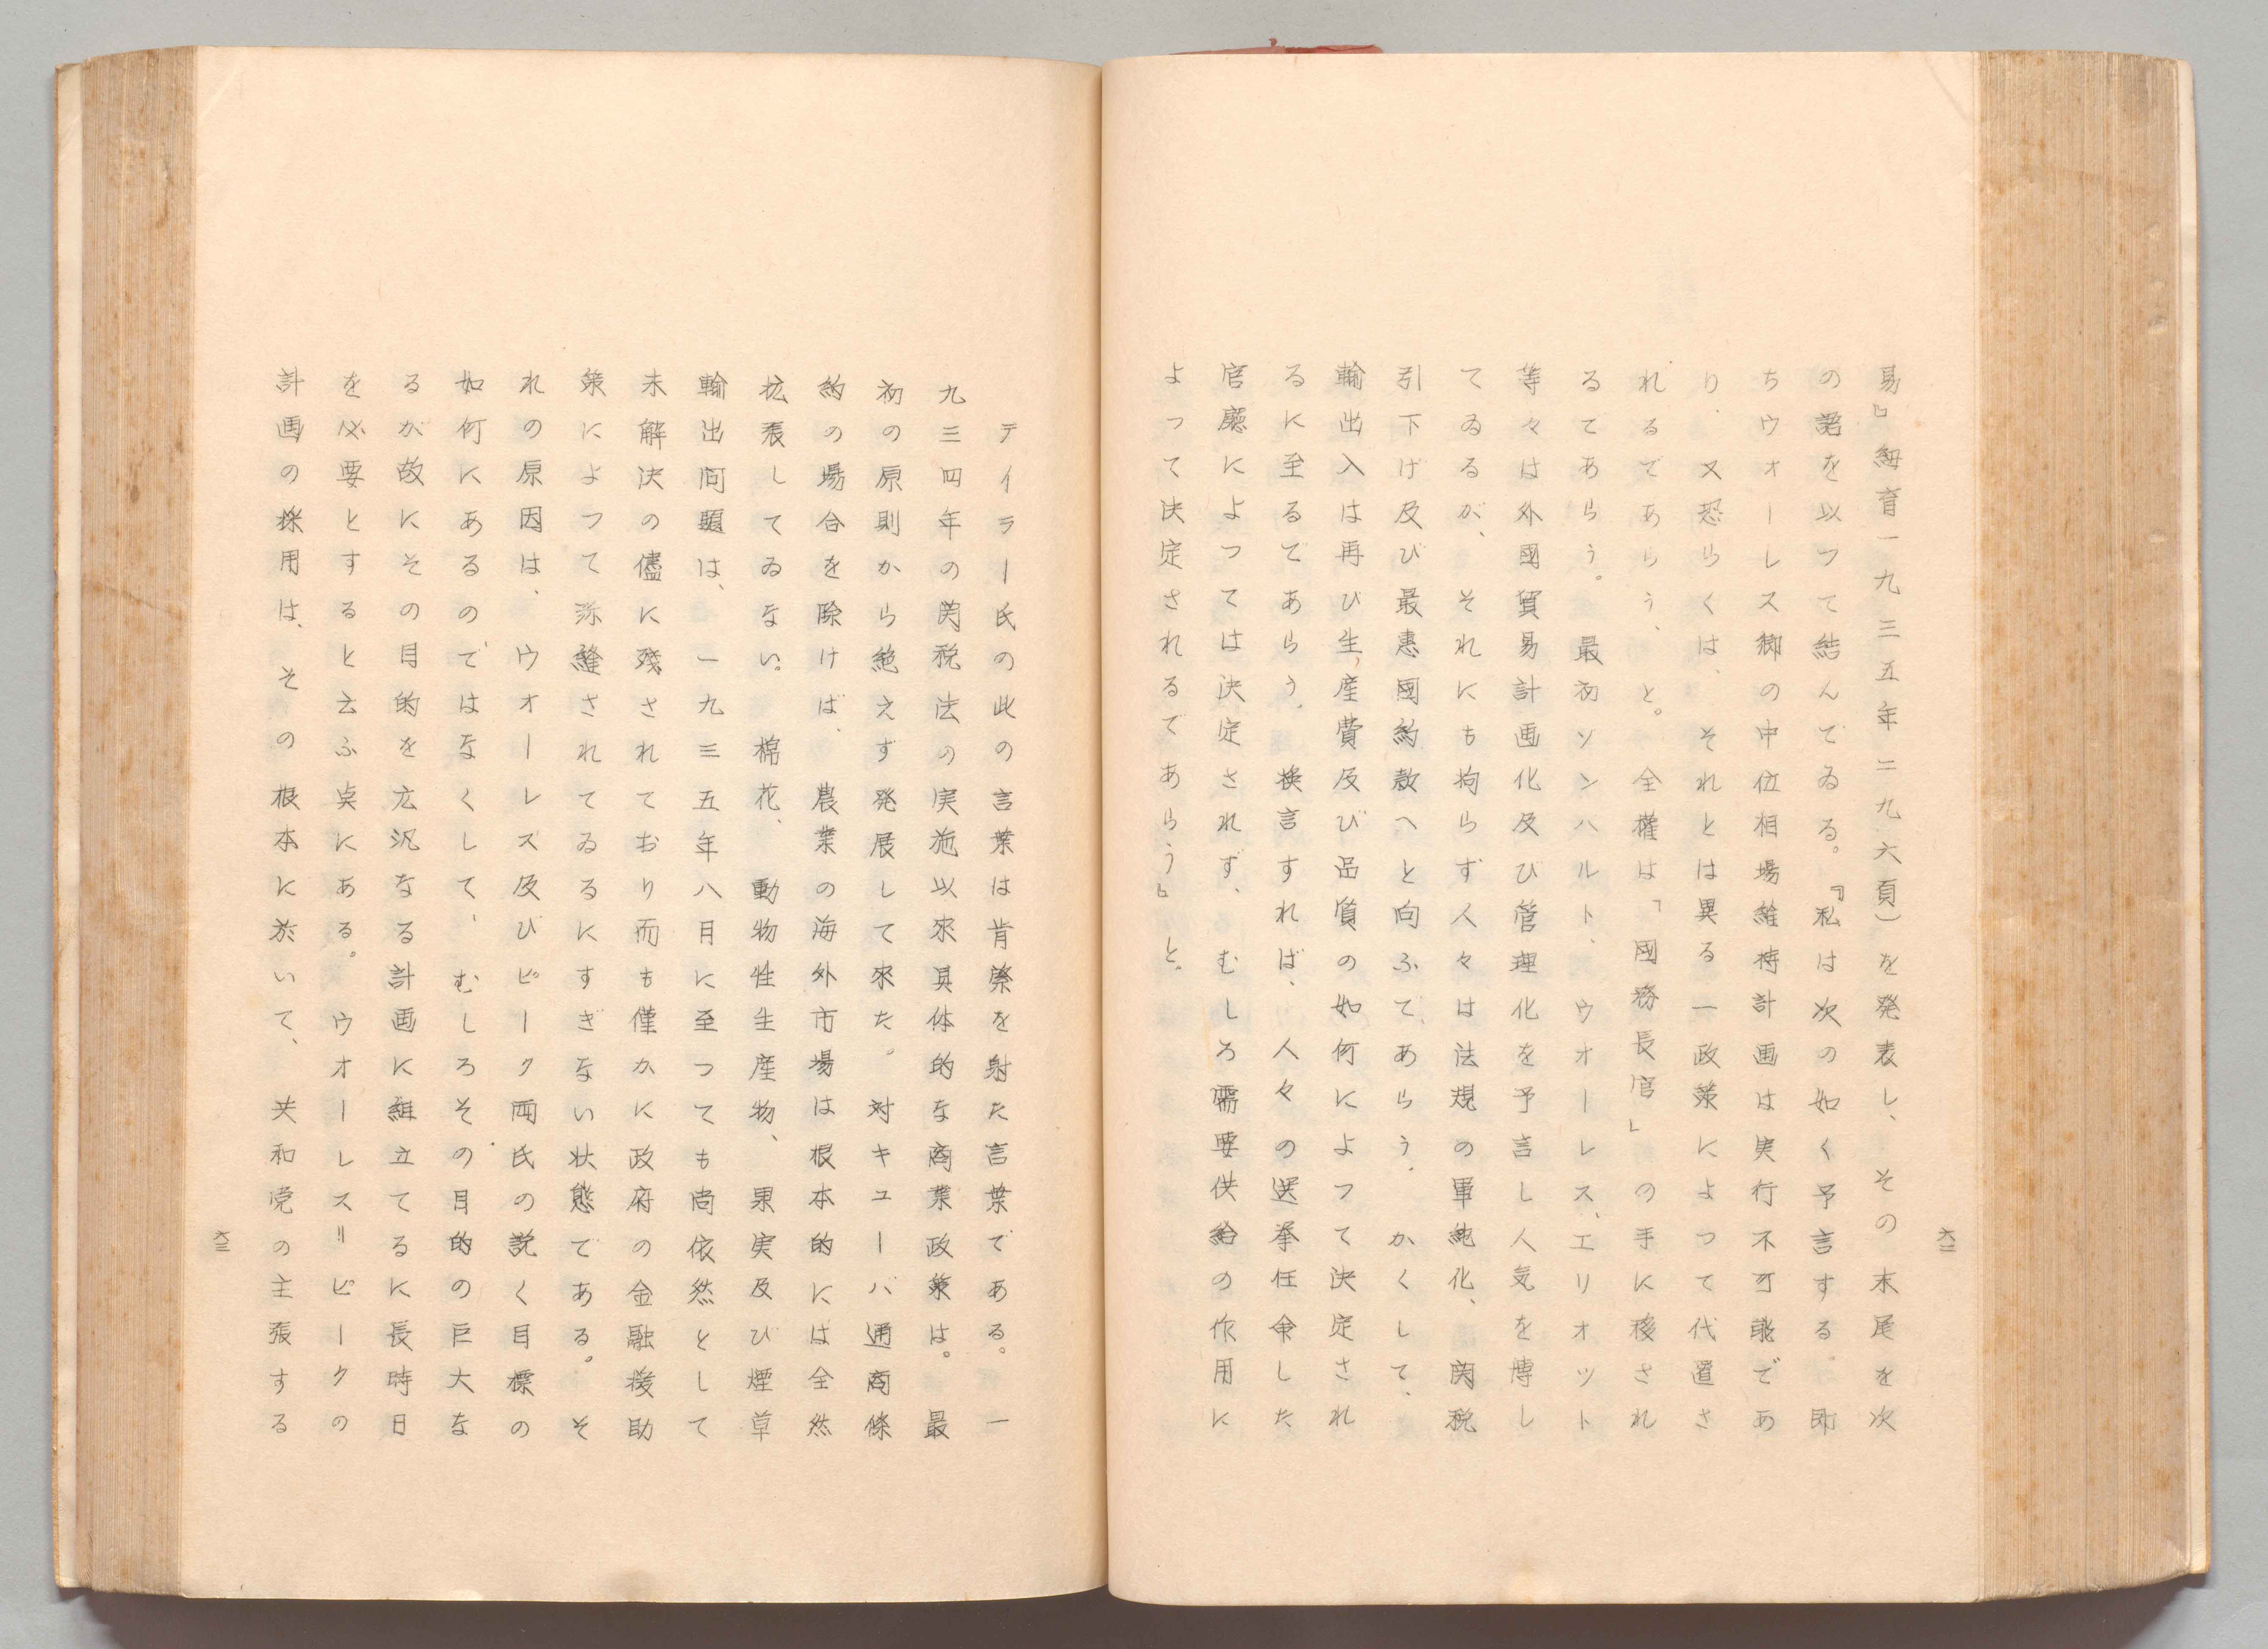 易』紐育一九三五年二九六頁）を発表し、その末尾を次
の語を以つて結んでゐる。『私は次の如く予言する。即
ちウォーレス卿の中位相場維持計画は実行不可能であ
り、又恐らくは、それとは異る一政策によつて代置さ
れるであらう、と。全權は「國務長官」の手に移され
るであらう。最初ソンハルト、ウオーレス、エリオット
等々は外國貿易計画化及び管理化を予言し人気を博し
てゐるが、それにも拘らず人々は法規の單純化、関税
引下げ及び最惠國約款へと向ふであらう。かくして、
輸出入は再び生産費及び品質の如何によつて決定され
るに至るであらう、換言すれば、人々の選挙任命した
官廳によつては決定されず、むしろ需要供給の作用に
よつて決定されるであらう』と。
六二
テイラー氏の此の言葉は肯綮を射た言葉である。一
九三四年の関税法の実施以來具体的な商業政策は。最
初の原則から絶えず発展して來た。対キューバ通商條
約の場合を除けば、農業の海外市場は根本的には全然
拡張してゐない。棉花、動物性生産物、果実及び煙草
輸出問題は、一九三五年八月に至つても尚依然として
未解決の儘に殘されており而も僅かに政府の金融援助
策によつて弥縫されてゐるにすぎない状態である。そ
れの原因は、ウオーレス及びピーク両氏の説く目標の
如何にあるのではなくして、むしろその目的の巨大な
るが故にその目的を広汎なる計画に組立てるに長時日
を必要とすると云ふ点にある。ウオーレス＝ピークの
計画の採用は、その根本に於いて、共和党の主張する
六三